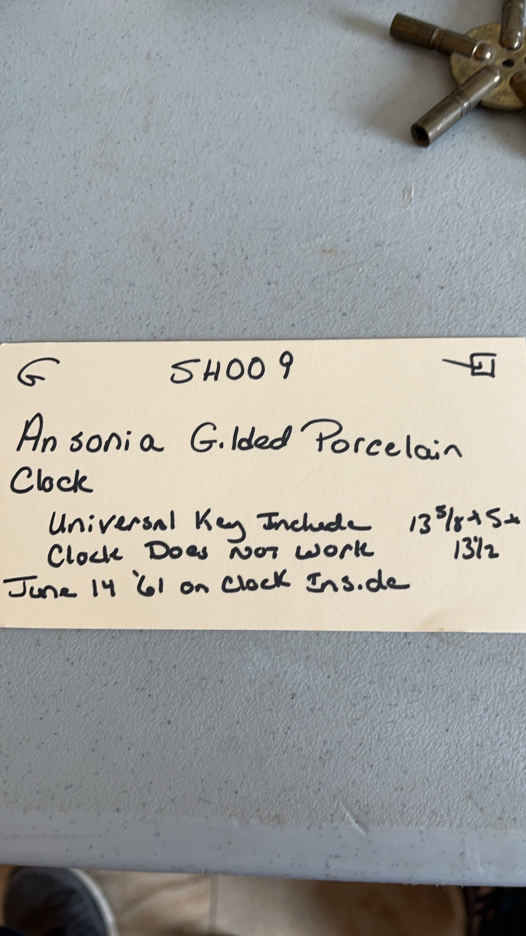 G SH009
Ansonia Gilded Porcelain
Clock
Universal Key Include 13 5/8 x 5 x
Clock Does Not Work 13 1/2
June 14 '61 on Clock Inside